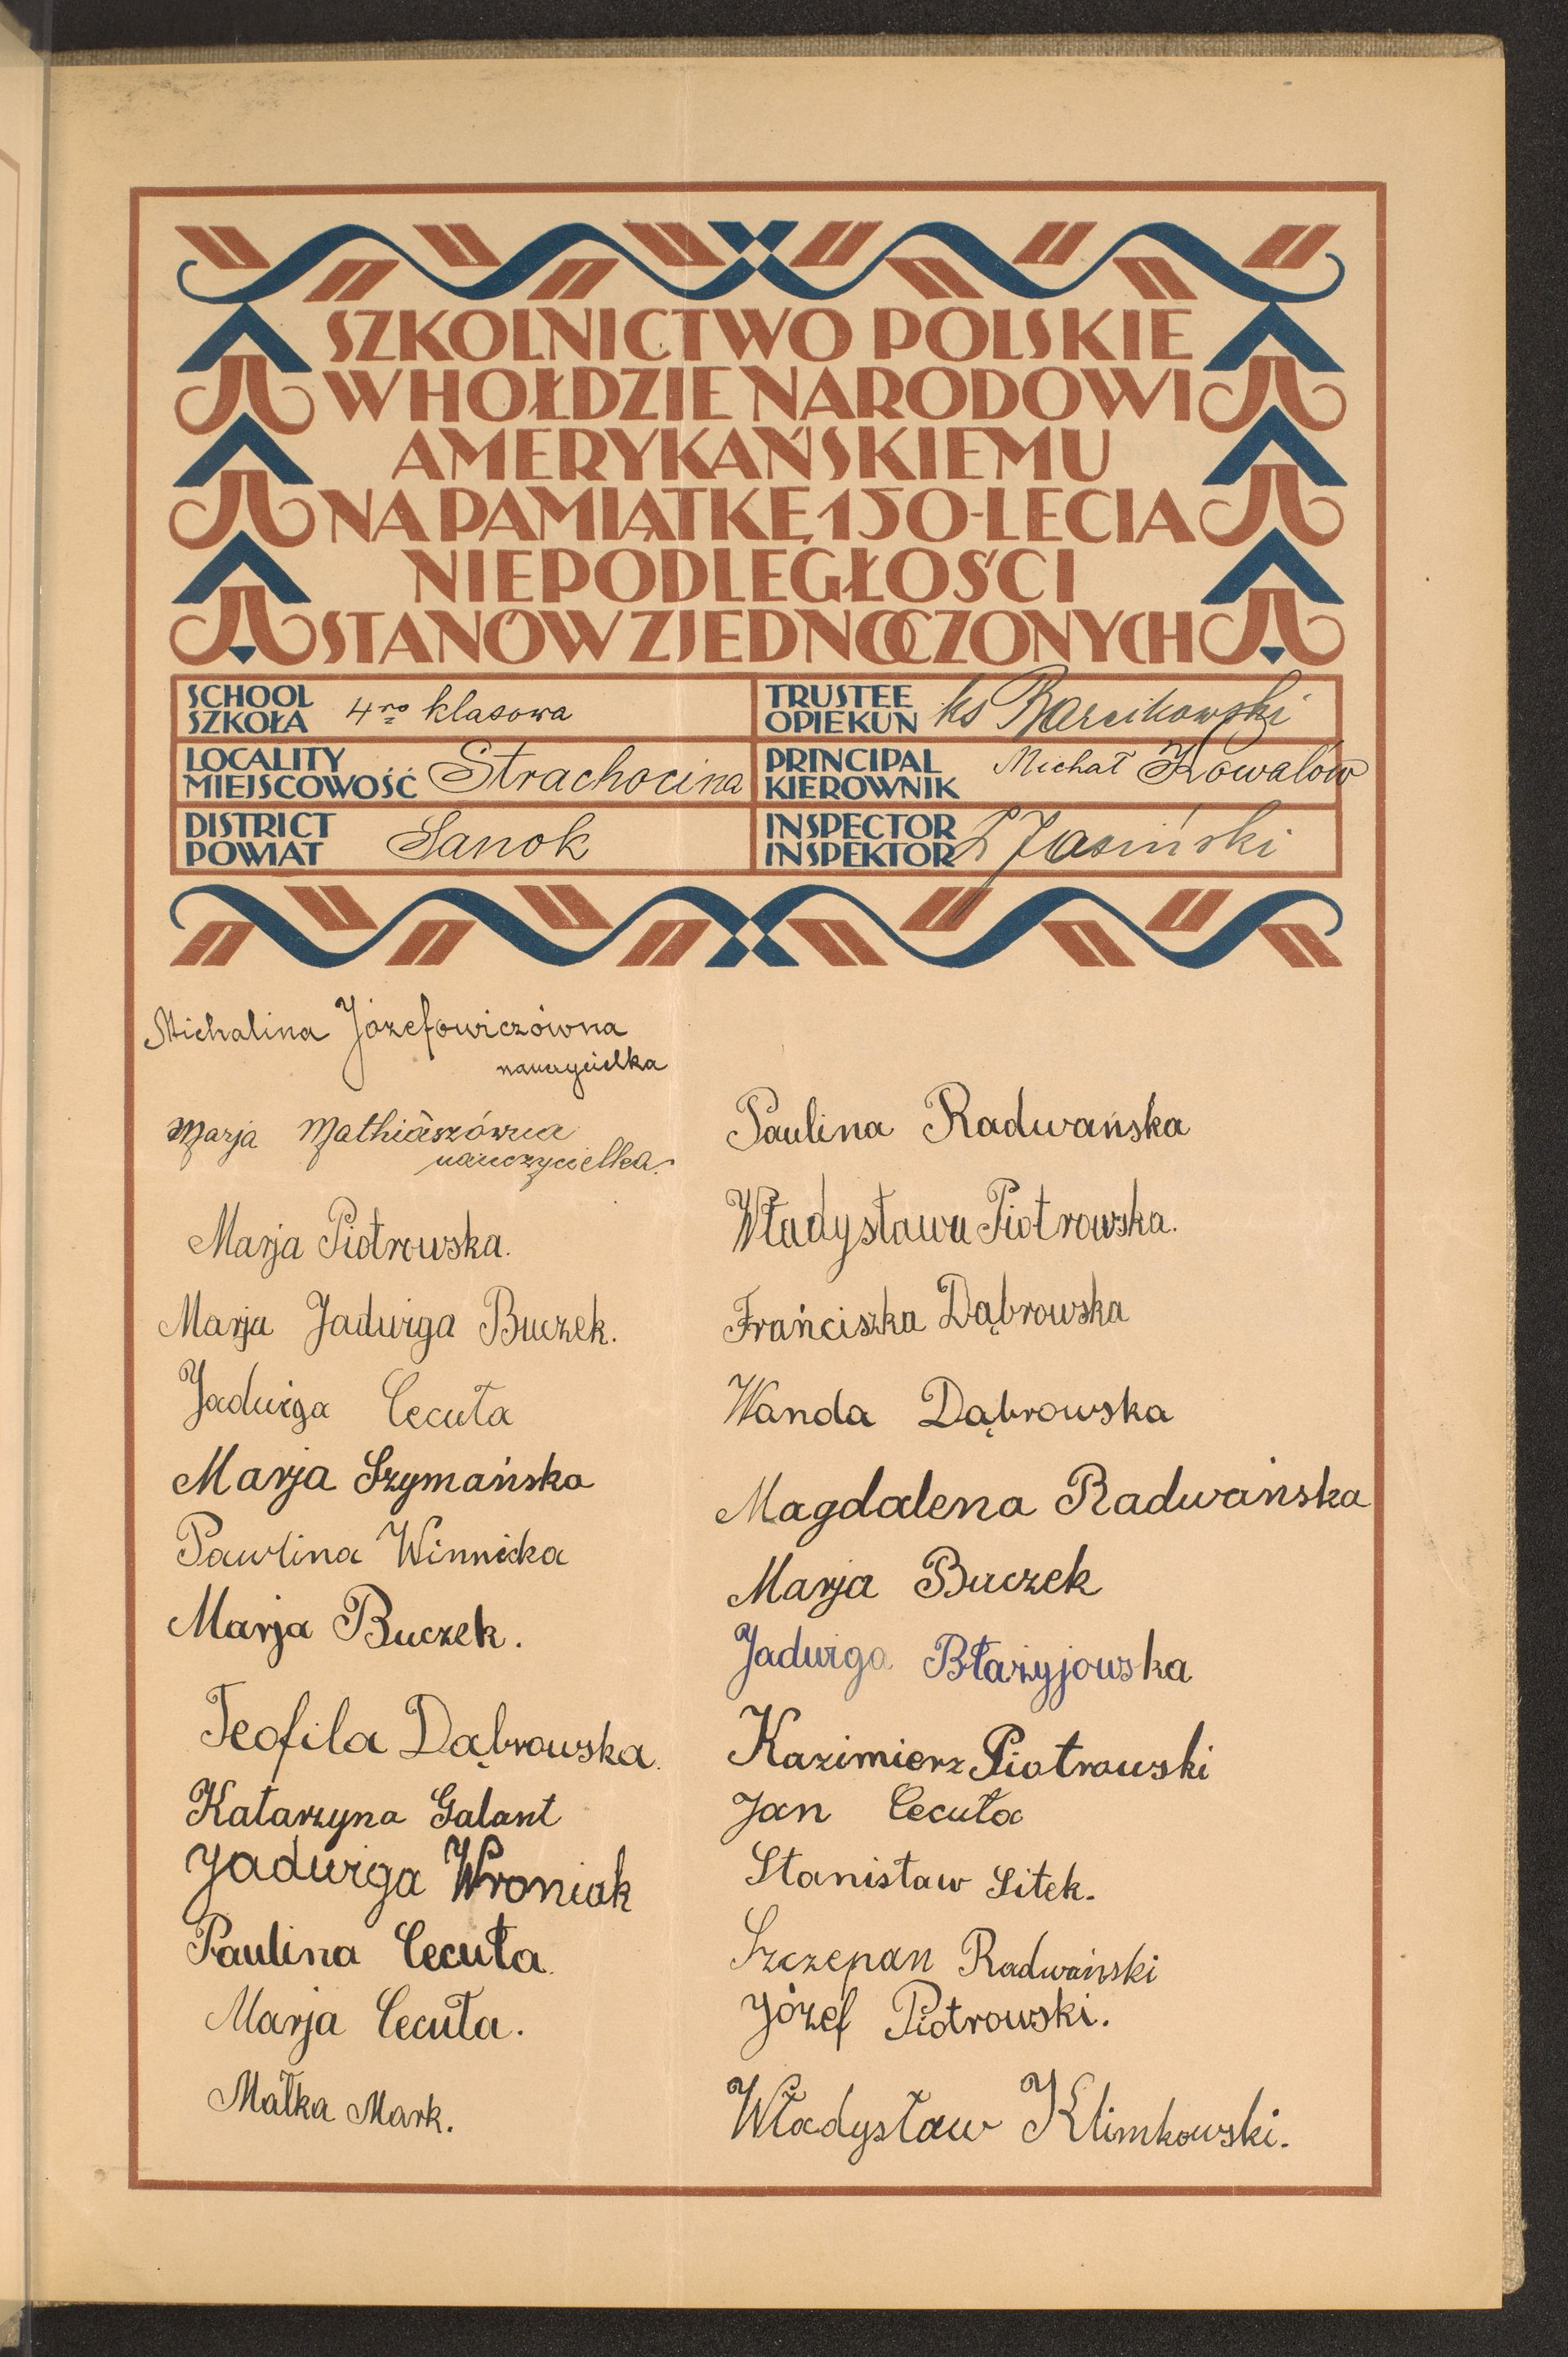 SZKOLNICTWO POLSKIE
W HOŁDZIE NARODOWI
AMERYKAŃSKIEMU
NA PAMIĄTKĘ 150-LECIA
NIEPODLEGŁOŚCI
STANÓW ZJEDNOCZONYCH
SCHOOL
SZKOŁA 4ro klasowa
TRUSTEE
OPIEKUN ks Barcikowski
LOCALITY
MIEJSCOWOŚĆ Strachocina
PRINCIPAL
KIEROWNIK Michał Kowalów
DISTRICT
POWIAT Sanok
INSPECTOR
INSPEKTOR Jasiński
Michalina Józefowiczówna
nauczycielka
Marja Mathiaszówna
nauczycielka.
Marja Piotrowska.
Marja Jadwiga Buczek.
Jadwiga Cecuła
Marja Szymańska
Pawlina Winnicka
Marja Buczek.
Teofila Dąbrowska.
Katarzyna Galant
Jadwiga Wroniak
Paulina Cecuła.
Marja Cecuła.
Małka Mark.
Paulina Radwańska
Władysława Piotrowska.
Frańciszka Dąbrowska
Wanda Dąbrowska
Magdalena Radwańska
Marja Buczek
Jadwiga Błażyjowska
Kazimierz Piotrowski
Jan Cecuła
Stanisław Sitek.
Szczepan Radwański
Józef Piotrowski.
Władysław Klimkowski.